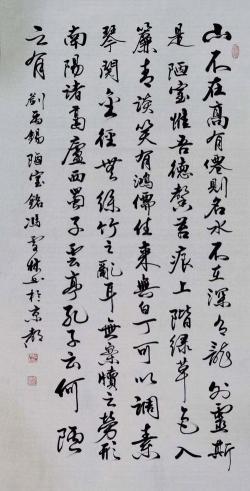 山不在高有僊則名水不在深有龍則靈斯
是陋室惟吾德馨苔痕上階綠草色入
簾青談笑有鴻儒往來無白丁可以調素
琴閱金經無絲竹之亂耳無案牘之勞形
南陽諸葛廬西蜀子雲亭孔子云何陋
之有 劉禹錫陋室銘馮雪林書於京都